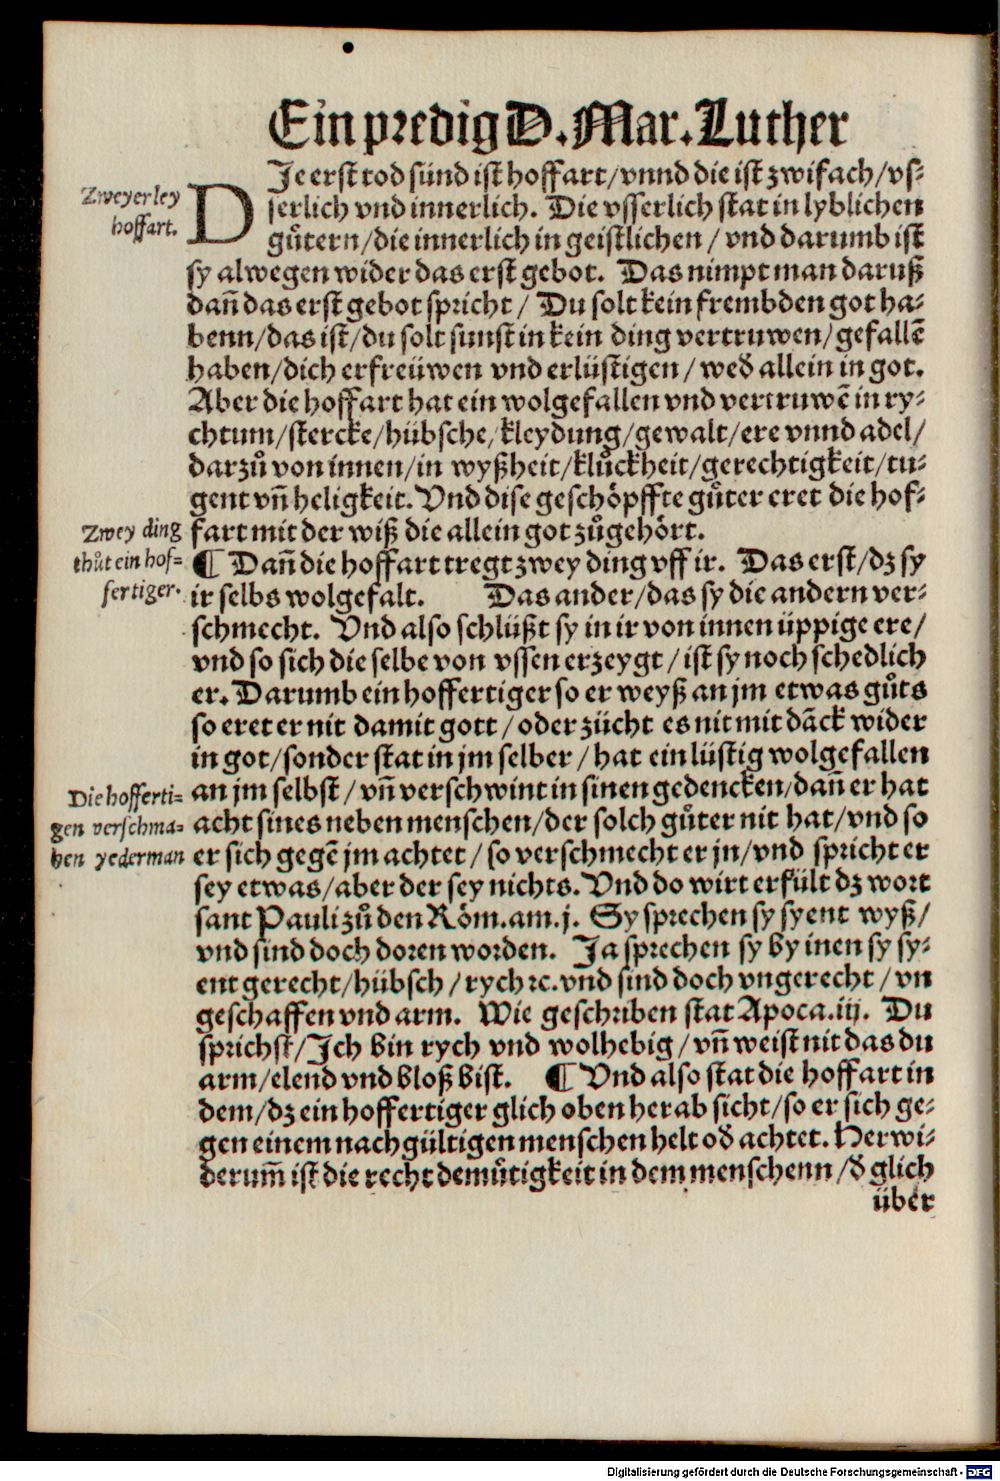 Ein predig D. Mar. Luther
Zweyerley
hoffart.
DJe erst tod sünd ist hoffart/vnnd die ist zwifach/vs⸗
serlich vnd innerlich. Die vsserlich stat in lyblichen
guͦtern/die innerlich in geistlichen / vnd darumb ist
sy alwegen wider das erst gebot. Das nimpt man daruß
dañ das erst gebot spricht / Du solt kein frembden got ha⸗
benn/das ist/du solt sunst in kein ding vertruwen/gefallē
haben/dich erfreüwen vnd erlüstigen / wed̕ allein in got.
Aber die hoffart hat ein wolgefallen vnd vertruwē in ry⸗
chtum/stercke/hübsche/kleydung/gewalt/ere vnnd adel/
darzuͦ von innen/in wyßheit/kluͦckheit/gerechtigkeit/tu⸗
gent vñ heligkeit. Vnd dise geschöpffte guͦter eret die hof⸗
Zwey ding
thuͦt ein hof⸗
fertiger.
fart mit der wiß die allein got zuͦgehört.
¶ Dañ die hoffart tregt zwey ding vff ir. Das erst/dz sy
ir selbs wolgefalt. Das ander/das sy die andern ver⸗
schmecht. Vnd also schlüßt sy in ir von innen üppige ere/
vnd so sich die selbe von vssen erzeygt / ist sy noch schedlich
er. Darumb ein hoffertiger so er weyß an jm etwas guͦts
so eret er nit damit gott / oder zücht es nit mit dāck wider
in got/sonder stat in jm selber / hat ein lüstig wolgefallen
Die hofferti⸗
gen verschma⸗
hen yederman
an jm selbst / vñ verschwint in sinen gedencken/dañ er hat
acht sines neben menschen/der solch guͦter nit hat/vnd so
er sich gegē jm achtet / so verschmecht er jn/vnd spricht er
sey etwas/aber der sey nichts. Vnd do wirt erfült dz wort
sant Pauli zuͦ den Röm. am. j. Sy sprechen sy syent wyß/
vnd sind doch doren worden. Ja sprechen sy by inen sy sy⸗
ent gerecht/hübsch / rych ꝛc. vnd sind doch vngerecht / vn
geschaffen vnd arm. Wie geschriben stat Apoca. iij. Du
sprichst/Jch bin rych vnd wolhebig / vñ weist nit das du
arm/elend vnd bloß bist. ¶ Vnd also stat die hoffart in
dem/dz ein hoffertiger glich oben herab sicht/so er sich ge⸗
gen einem nachgültigen menschen helt od̕ achtet. Herwi⸗
derum̃ ist die recht demuͤtigkeit in dem menschenn/d̕ glich
über
Digitalisierung gefördert durch die Deutsche Forschungsgemeinschaft - DFG